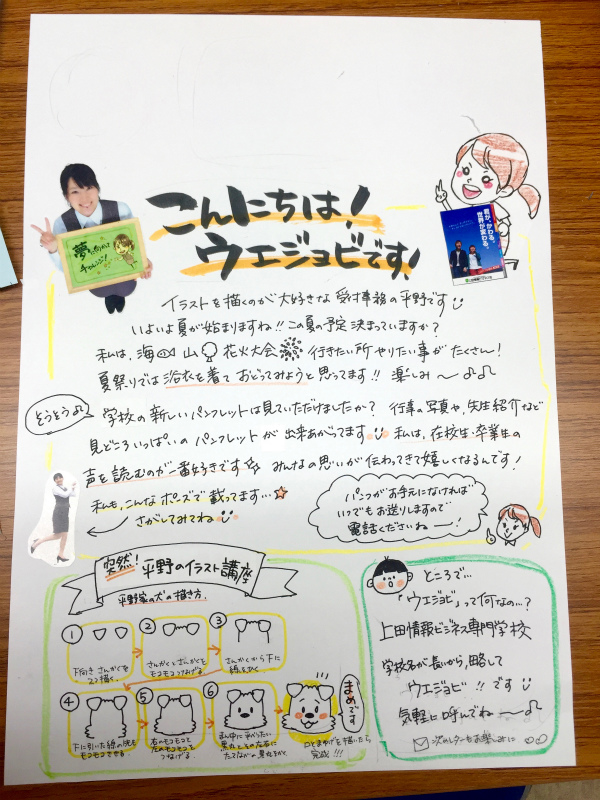 こんにちは!
ウエジョビです!
夢に向かって
チャレンジ!
君が、かわる。
世界が変わる。
イラストを描くのが大好きな受付事務の平野です
いよいよ夏が始まりますね!!この夏の予定決まっていますか?
私は、海 山 花火大会 行きたい所やりたい事がたくさん!
夏祭りでは浴衣を着ておどってみようと思ってます!! 楽しみ〜♪♪
そうそう♪
学校の新しいパンフレットは見ていただけましたか? 行事の写真や、先生紹介など
見どころいっぱいのパンフレットが出来あがってます 私は、在校生・卒業生の
声を読むのが一番好きです☆ みんなの思いが伝わってきて嬉しくなるんです!
私も、こんなポーズで載ってます…☆
さがしてみてね
パンフがお手元になければ
いつでもお送りしますので
電話くださいねー!
突然! 平野のイラスト講座
平野家の犬の描き方。
①
下向きさんかくを
2つ描く。
②
さんかくとさんかくを
モコモコつなげる。
③
さんかくから下に
線をひく
④
下に引いた線の先も
モコモコさせる。
⑤
右のモコモコと
左のモコモコを
つなげる。
⑥
真中に平べったい
黒丸とその左右に
たてながの黒丸をかく
口とまゆげを描いたら
完成!!!
まめです
ところで…
「ウエジョビ」って何なの…?
上田情報ビジネス専門学校
学校名が長いから、略して
ウエジョビ!!です
気軽に呼んでね〜♪
次のレターもお楽しみに